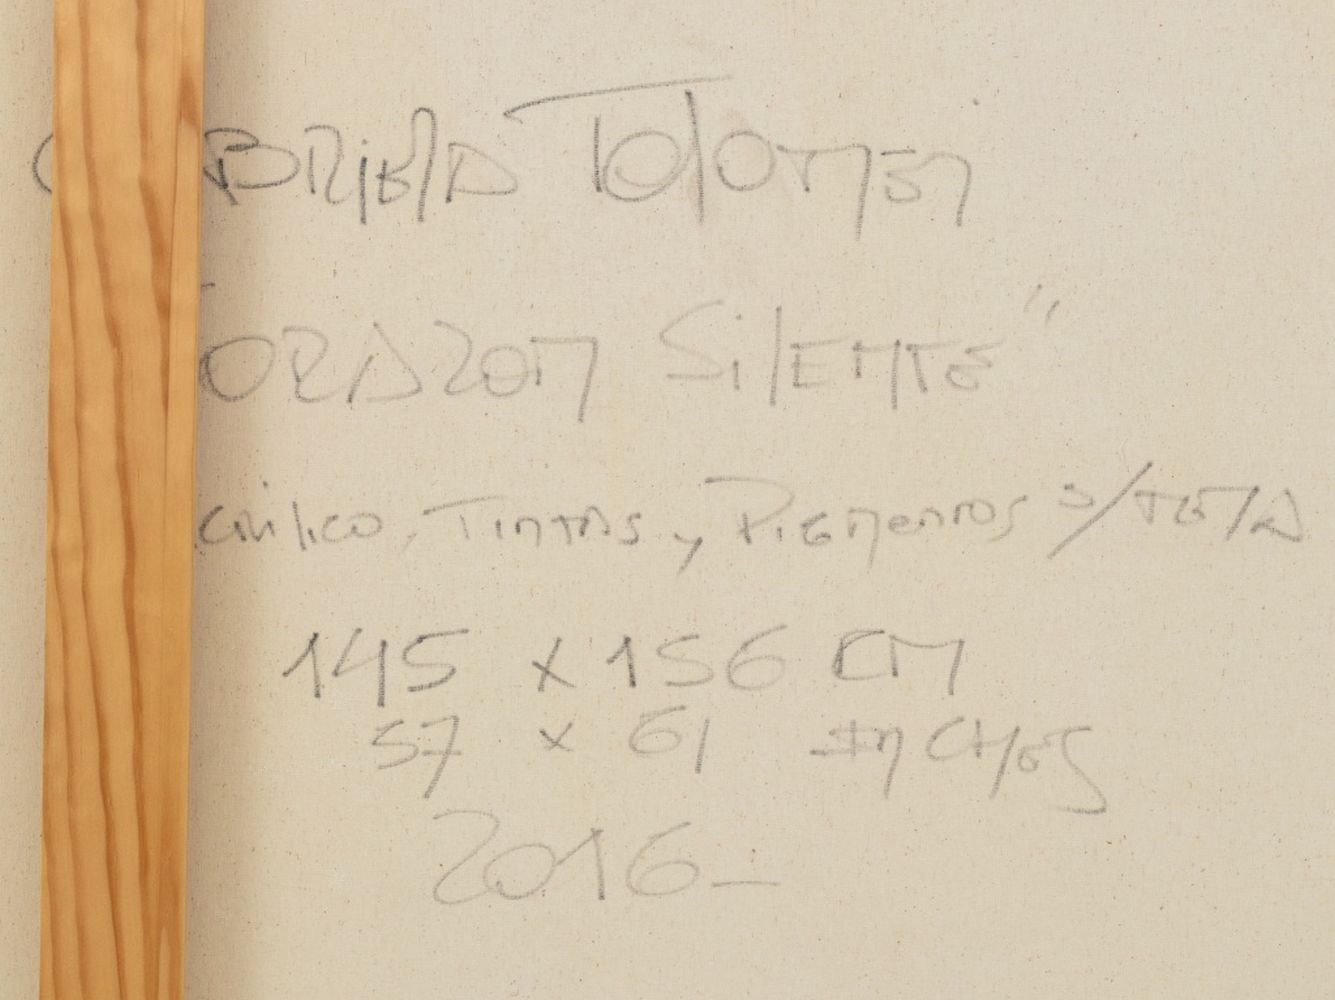 GABRIELA TOLOMEI
CORAZON SILENTE"
crilico, Tintas y Pigmentos s/TELA
145 x 156 CM
57 x 61 InCHES
2016_